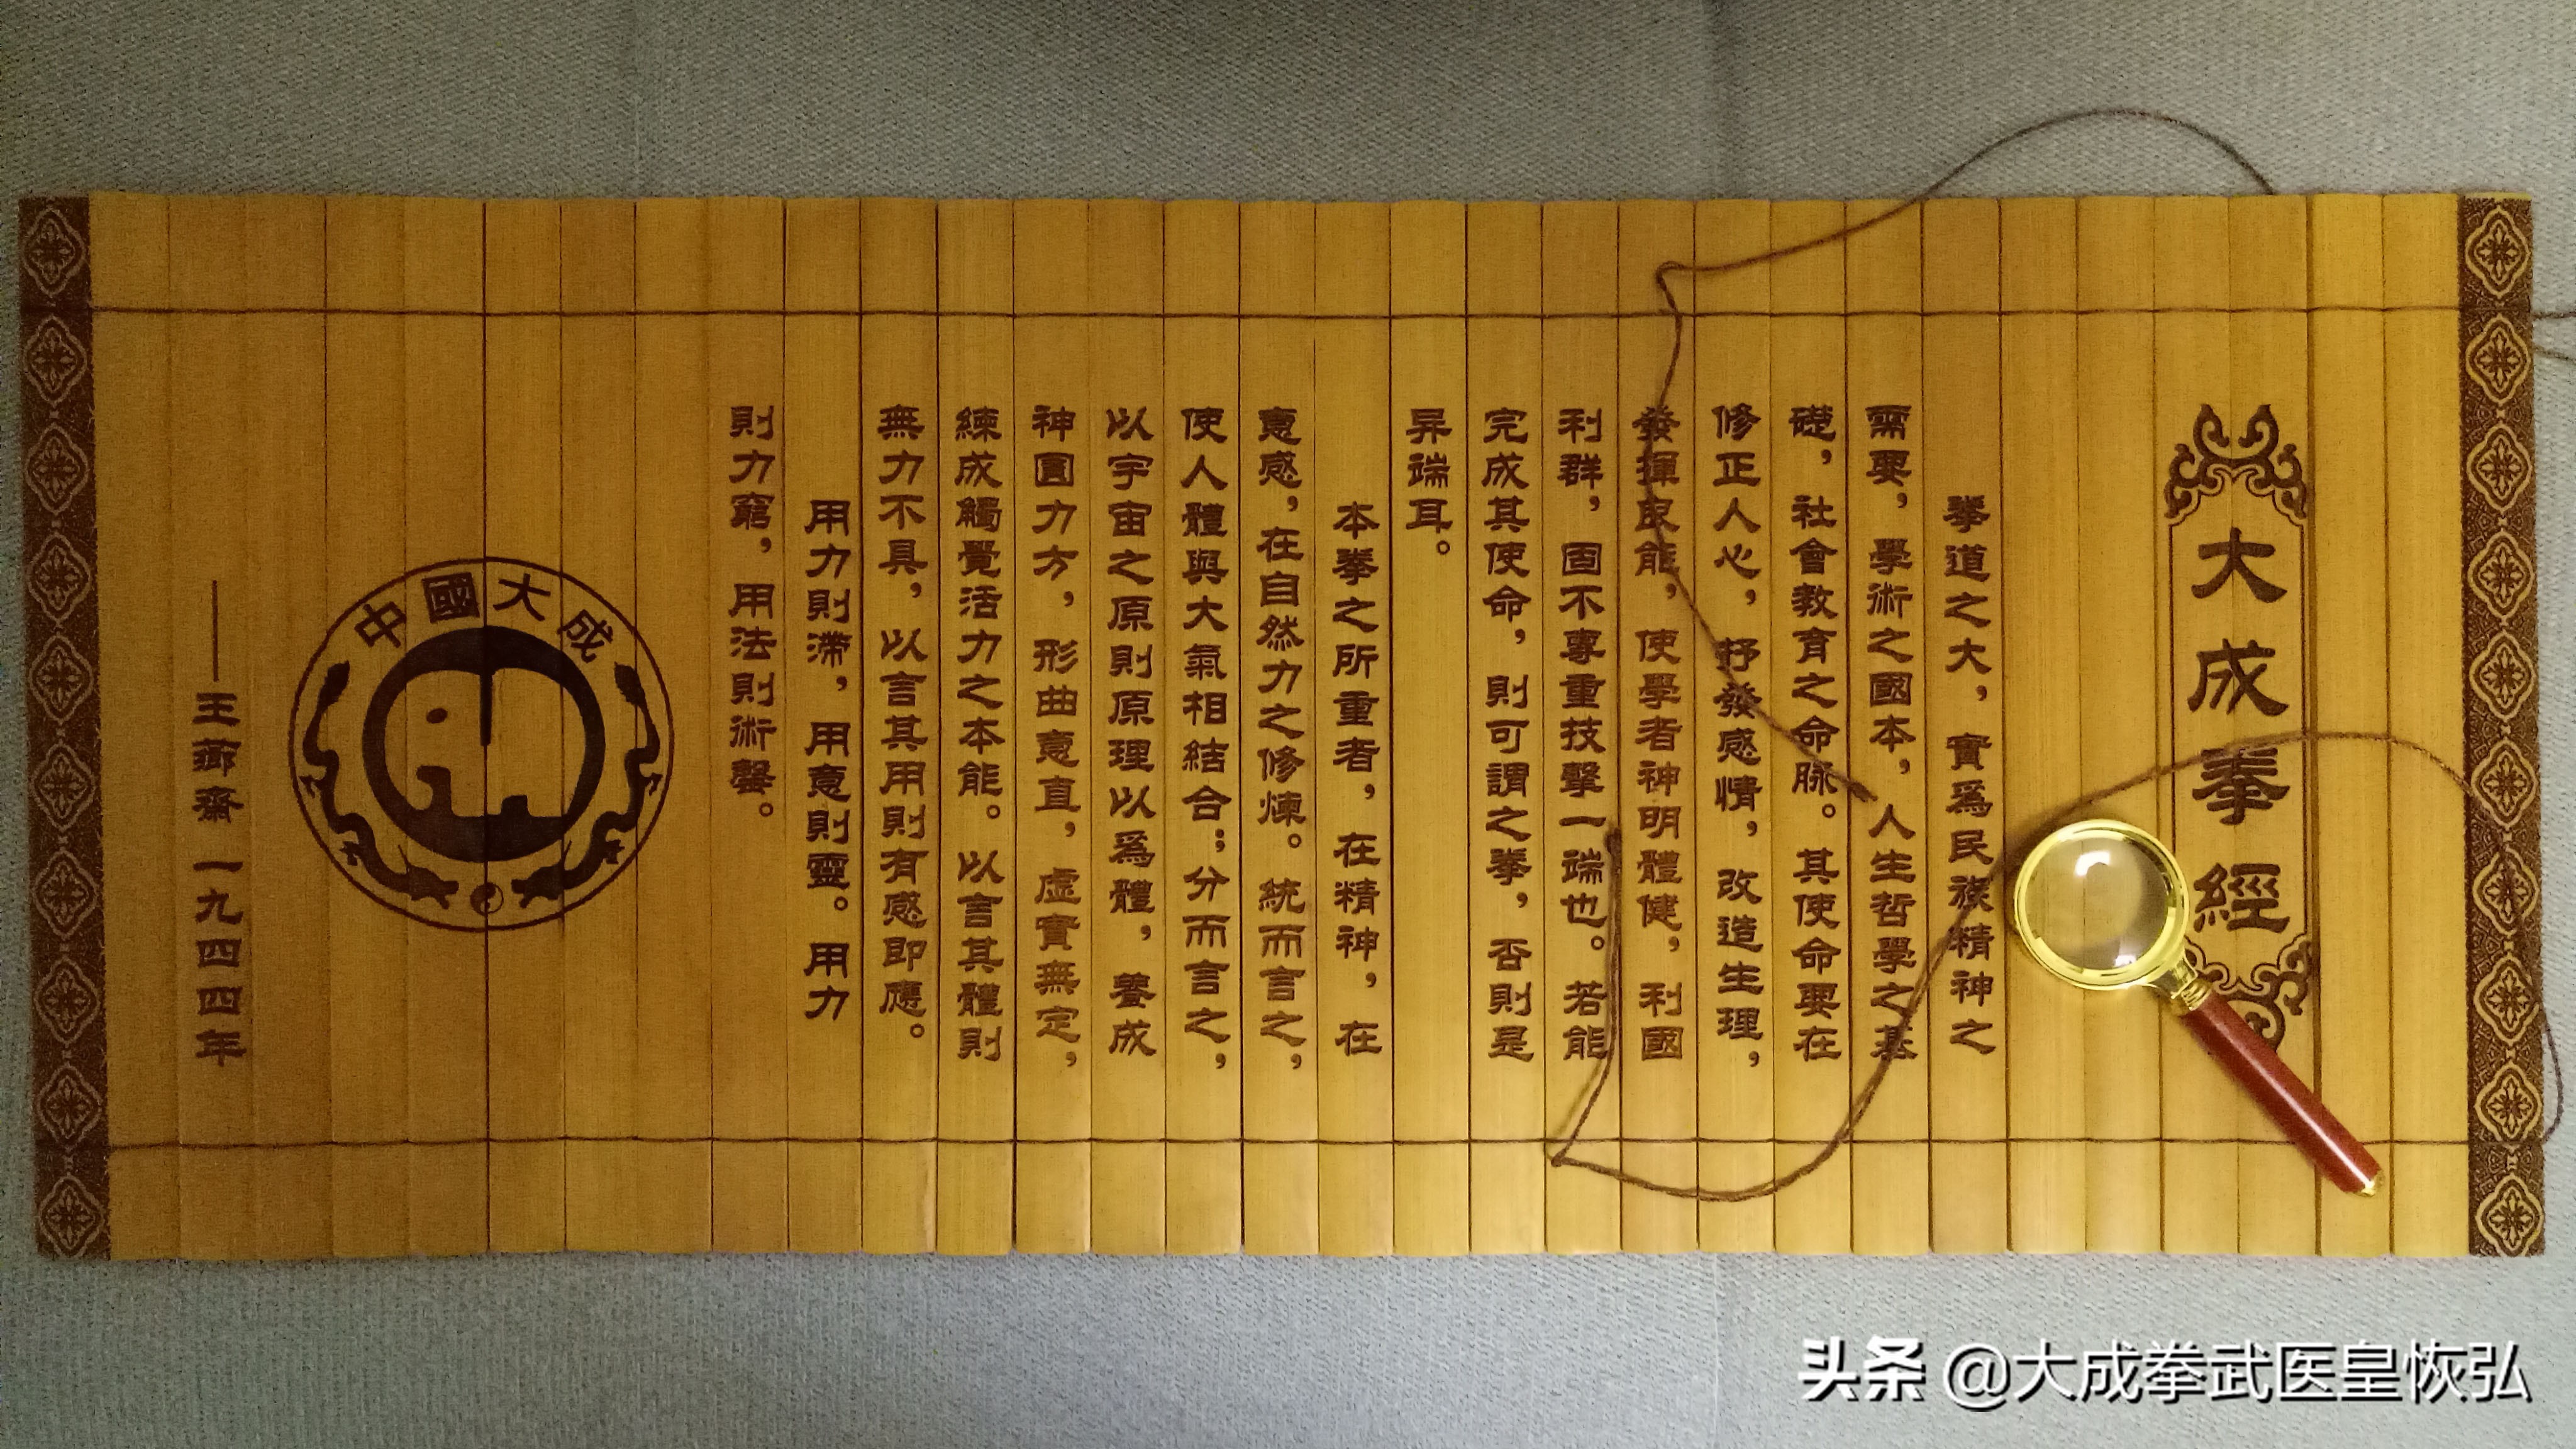 大成拳經
拳道之大，實爲民族精神之
需要，學術之國本，人生哲學之基
礎，社會教育之命脉。其使命要在
修正人心，抒發感情，改造生理，
發揮良能，使學者神明體健，利國
利群，固不專重技擊一端也。若能
完成其使命，則可謂之拳，否則是
异端耳。
本拳之所重者，在精神，在
意感，在自然力之修煉。統而言之，
使人體與大氣相結合；分而言之，
以宇宙之原則原理以爲體，養成
神圓力方，形曲意直，虛實無定，
練成觸覺活力之本能。以言其體則
無力不具，以言其用則有感即應。
用力則滯，用意則靈。用力
則力窮，用法則術罄。
中國大成
——王薌齋 一九四四年
头条 @大成拳武医皇恢弘